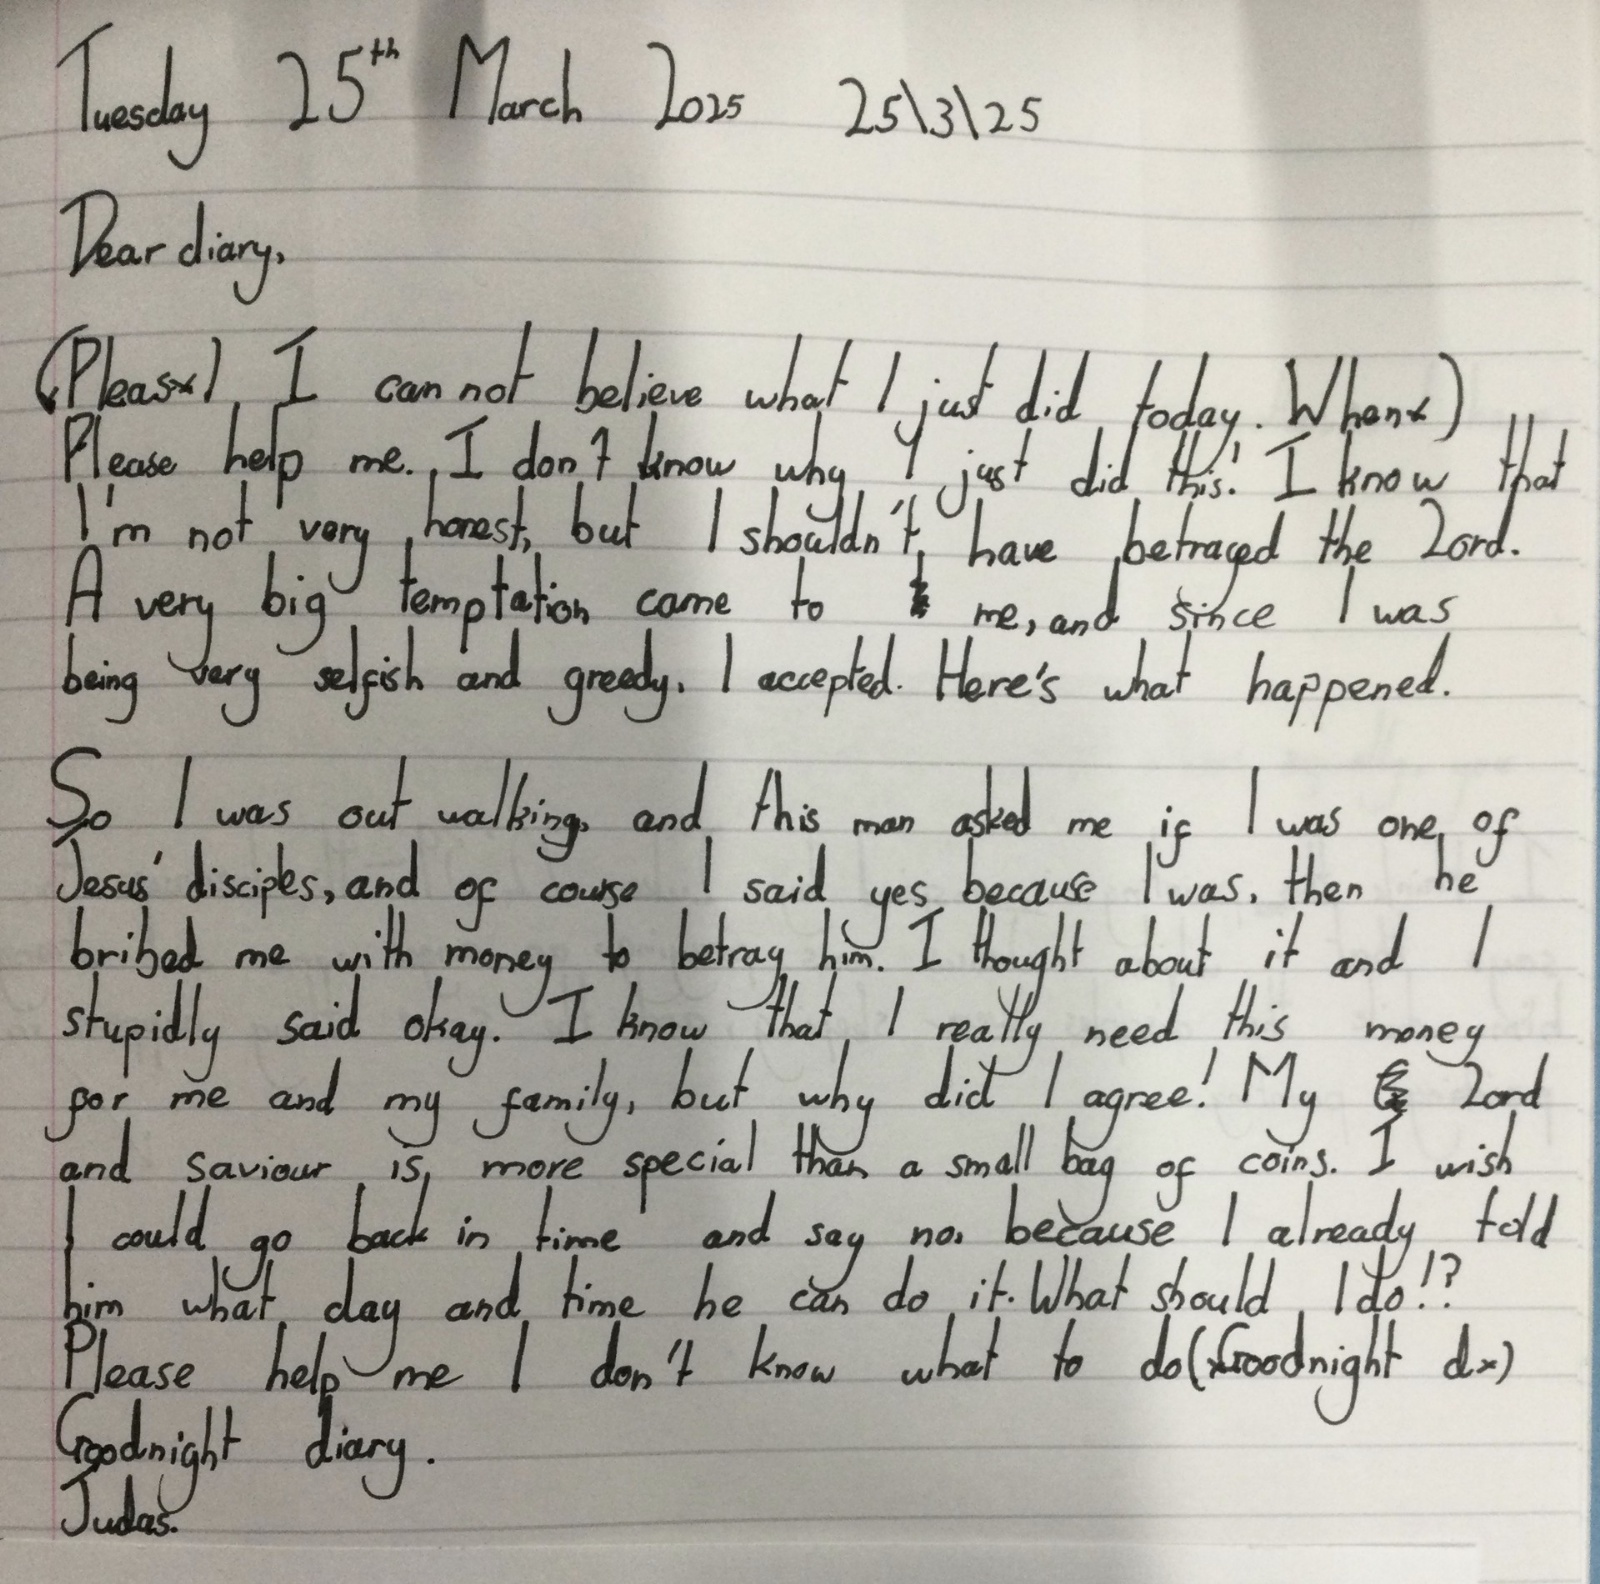 Tuesday 25th March 2025 25\3\25
Dear diary,
(Pleasx) I can not believe what I just did today. Whenx)
Please help me. I don't know why I just did this! I know that
I'm not very honest, but I shouldn't have betrayed the Lord.
A very big temptation came to me, and since I was
being very selfish and greedy, I accepted. Here's what happened.
So I was out walking, and this man asked me if I was one of
Jesus' disciples, and of course I said yes because I was, then he
bribed me with money to betray him. I thought about it and I
stupidly said okay. I know that I really need this money
for me and my family, but why did I agree! My Lord
and saviour is more special than a small bag of coins. I wish
I could go back in time and say no, because I already told
him what day and time he can do it. What should I do!?
Please help me I don't know what to do(xGoodnight dx)
Goodnight diary.
Judas.